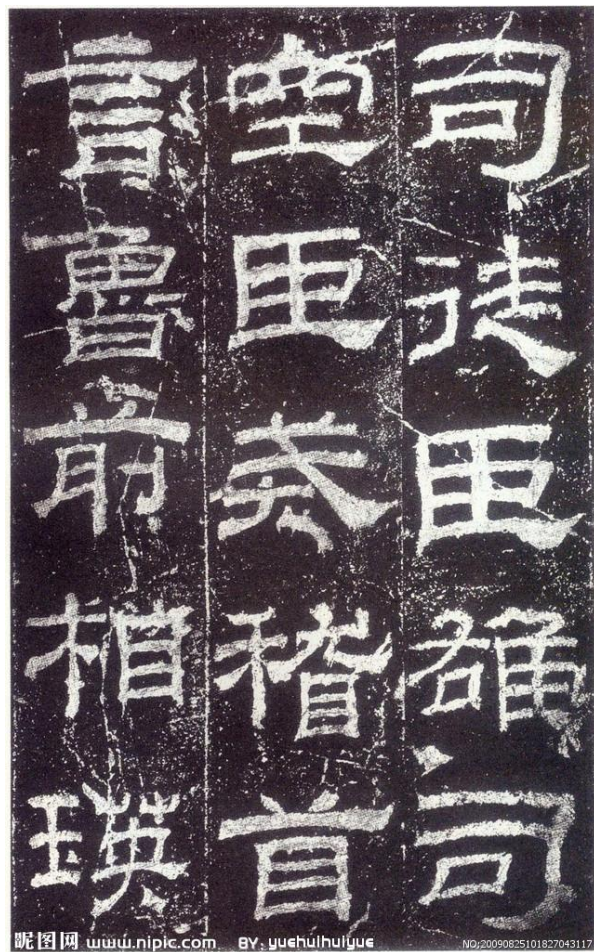 司徒臣雄司
空臣戒稽首
言魯前相瑛
昵图网 www.nipic.com BY: yuehuihuiyue NO:20090825101827043117